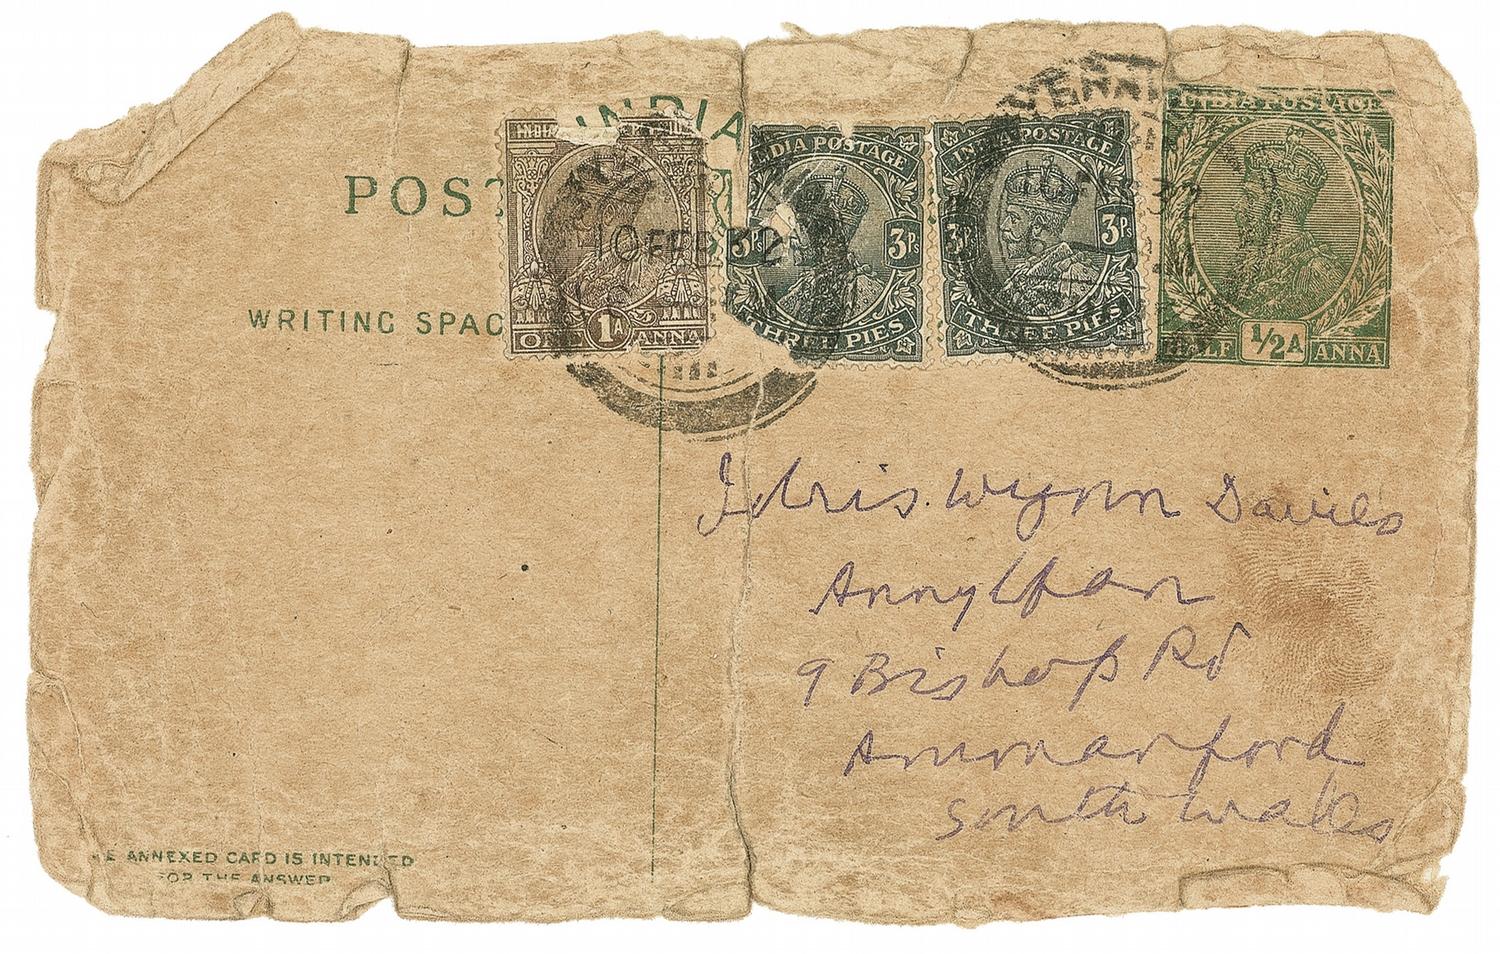 INDIA
POST
WRITING SPAC
INDIA
10 FEB 32
ONE 1A ANNA
INDIA POSTAGE
3Ps 3Ps
THREE PIES
INDIA POSTAGE
3Ps 3Ps
THREE PIES
32
INDIA POSTAGE
HALF 1/2A ANNA
Idris. Wynn Davies
9 Bishop Rd
Ammanford
South Wales
E ANNEXED CARD IS INTENDED
FOR THE ANSWER